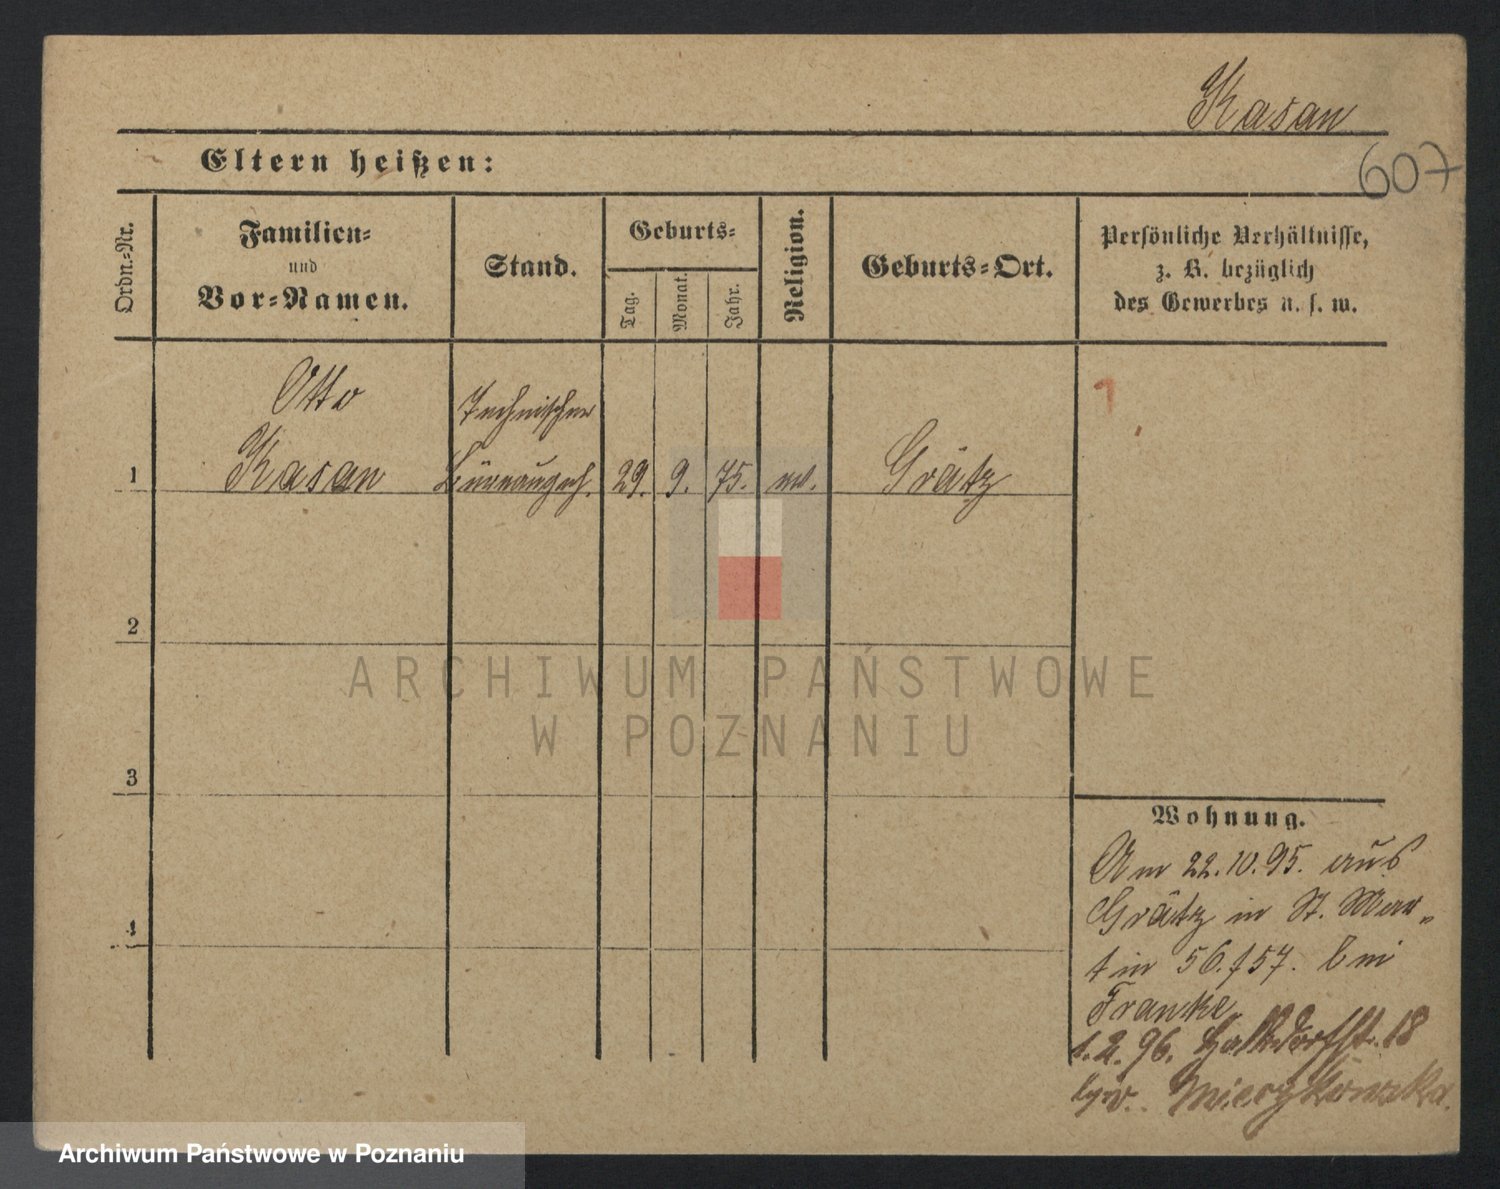 Kasan
607
Eltern heißen:
Ordn.-Nr.
Familien-
und
Vor-Namen.
Stand.
Geburts-
Tag.
Monat.
Jahr.
Religion.
Geburts-Ort.
Persönliche Verhältnisse,
z. B. bezüglich
des Gewerbes u. s. w.
1
Otto
Kasan
Technischer
29. 9. 75. ev. Grätz
1
2
3
4
Wohnung.
Am 22.10.95. aus
Grätz in St. Mar-
tin 56./57. bei
Franke
1. 2. 96. Halbdorfstr. 18
ARCHIWUM PAŃSTWOWE
W POZNANIU
Archiwum Państwowe w Poznaniu